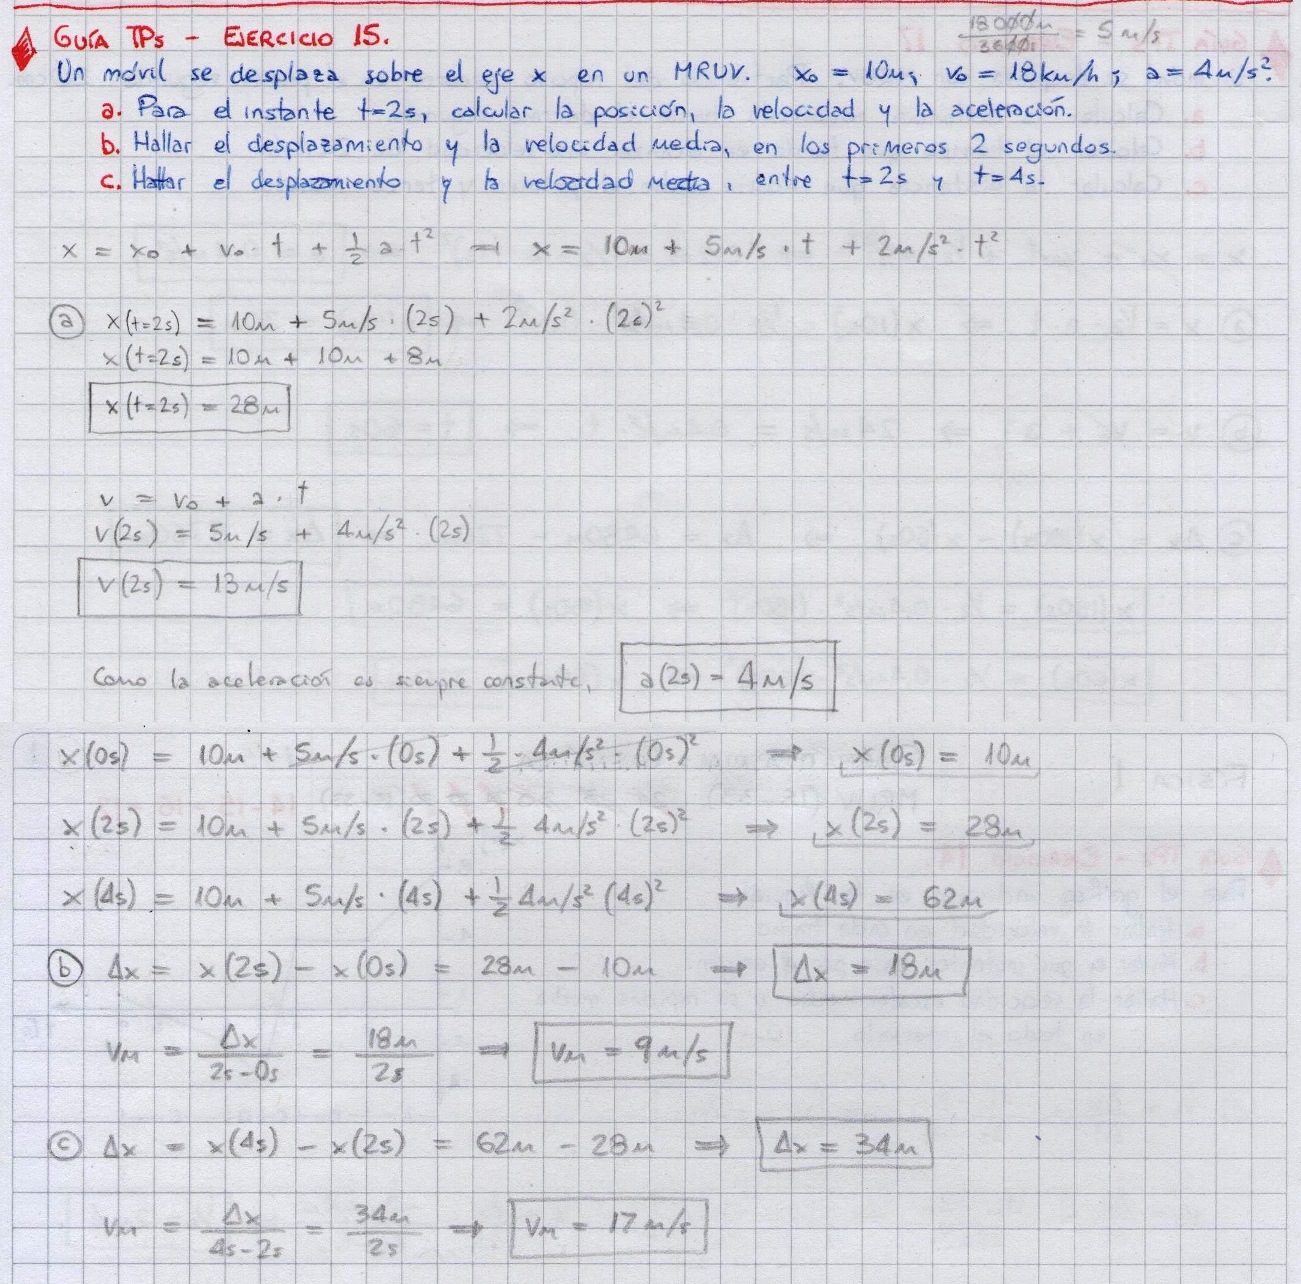 18000m / 3600s = 5m/s
GUÍA TPs - EJERCICIO 15.
Un móvil se desplaza sobre el eje x en un MRUV. x₀ = 10m; v₀ = 18km/h; a = 4m/s².
a. Para el instante t=2s, calcular la posición, la velocidad y la aceleración.
b. Hallar el desplazamiento y la velocidad media, en los primeros 2 segundos.
c. Hallar el desplazamiento y la velocidad media, entre t=2s y t=4s.
x = x₀ + v₀ · t + 1/2 a · t² → x = 10m + 5m/s · t + 2m/s² · t²
ⓐ x(t=2s) = 10m + 5m/s · (2s) + 2m/s² · (2s)²
x(t=2s) = 10m + 10m + 8m
x(t=2s) = 28m
v = v₀ + a · t
v(2s) = 5m/s + 4m/s² · (2s)
v(2s) = 13m/s
Como la aceleración es siempre constante, a(2s) = 4m/s
x(0s) = 10m + 5m/s · (0s) + 1/2 · 4m/s² · (0s)² ⇒ x(0s) = 10m
x(2s) = 10m + 5m/s · (2s) + 1/2 4m/s² · (2s)² ⇒ x(2s) = 28m
x(4s) = 10m + 5m/s · (4s) + 1/2 4m/s² (4s)² ⇒ x(4s) = 62m
ⓑ Δx = x(2s) - x(0s) = 28m - 10m ⇒ Δx = 18m
vm = Δx / 2s-0s = 18m / 2s ⇒ vm = 9m/s
ⓒ Δx = x(4s) - x(2s) = 62m - 28m ⇒ Δx = 34m
vm = Δx / 4s-2s = 34m / 2s ⇒ vm = 17m/s